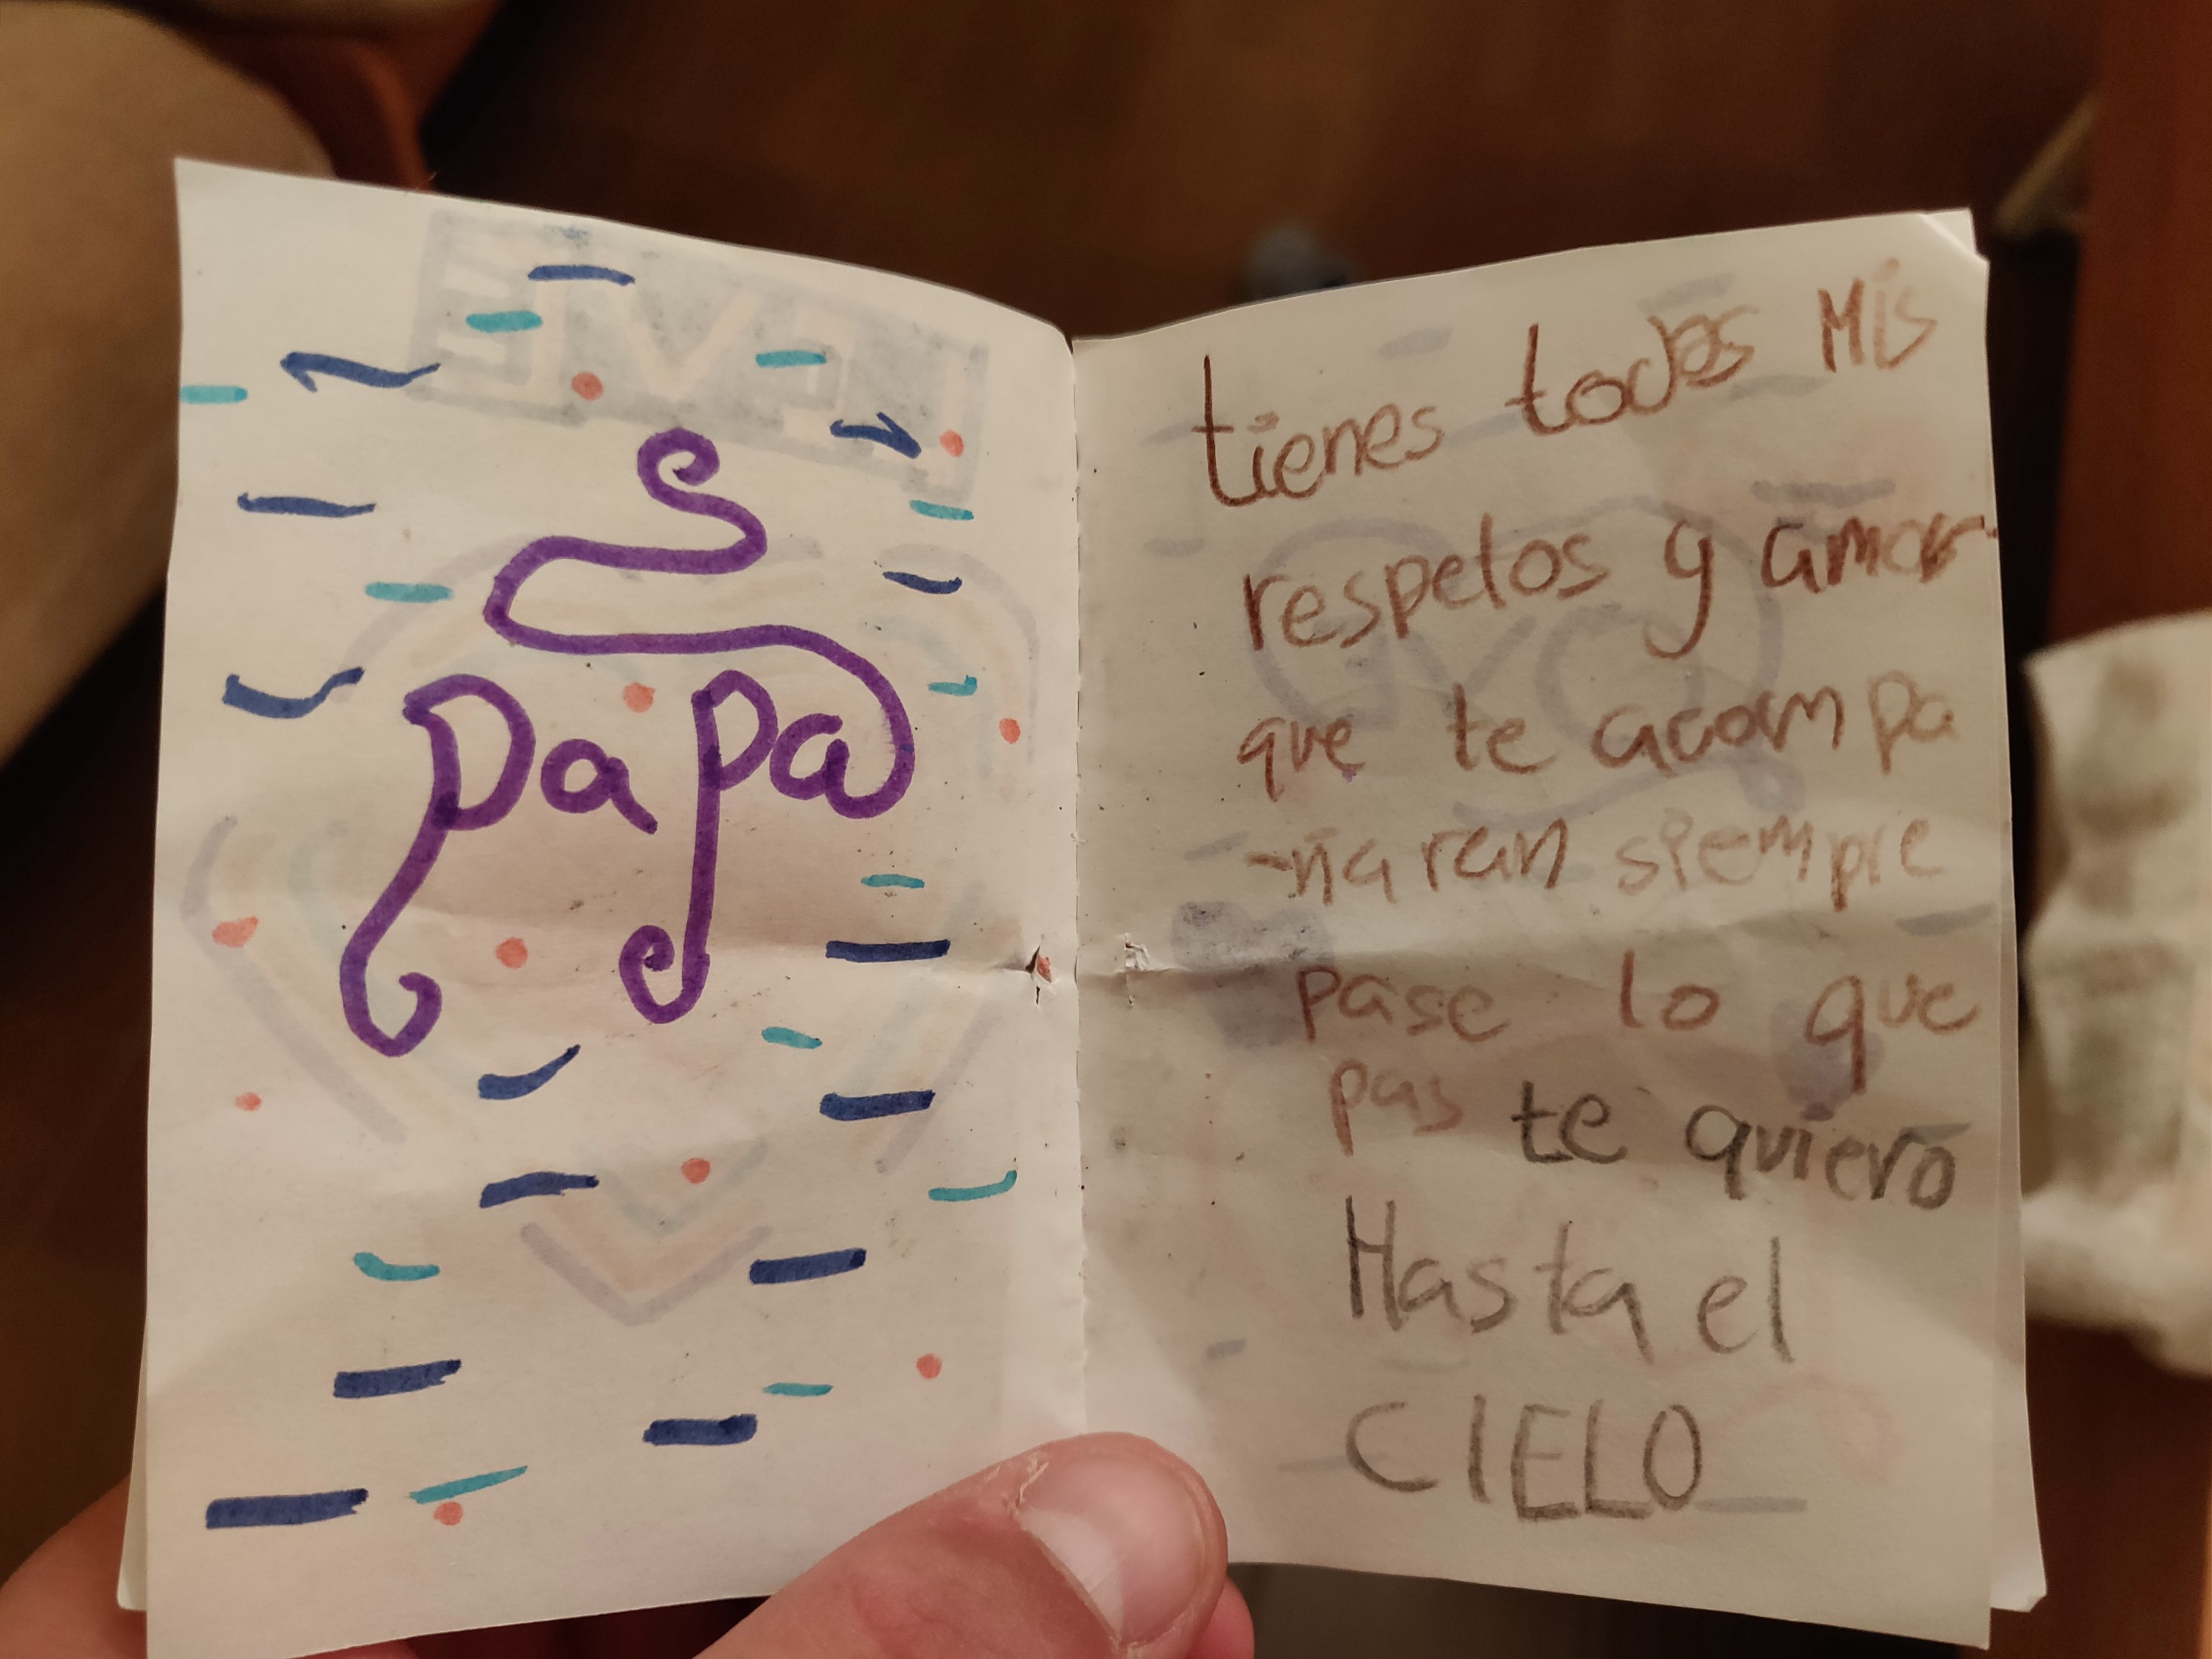 papa
tienes todos Mis
respetos y amor
que te acompa
-ñaran siempre
pase lo que
pas te quiero
Hasta el
CIELO